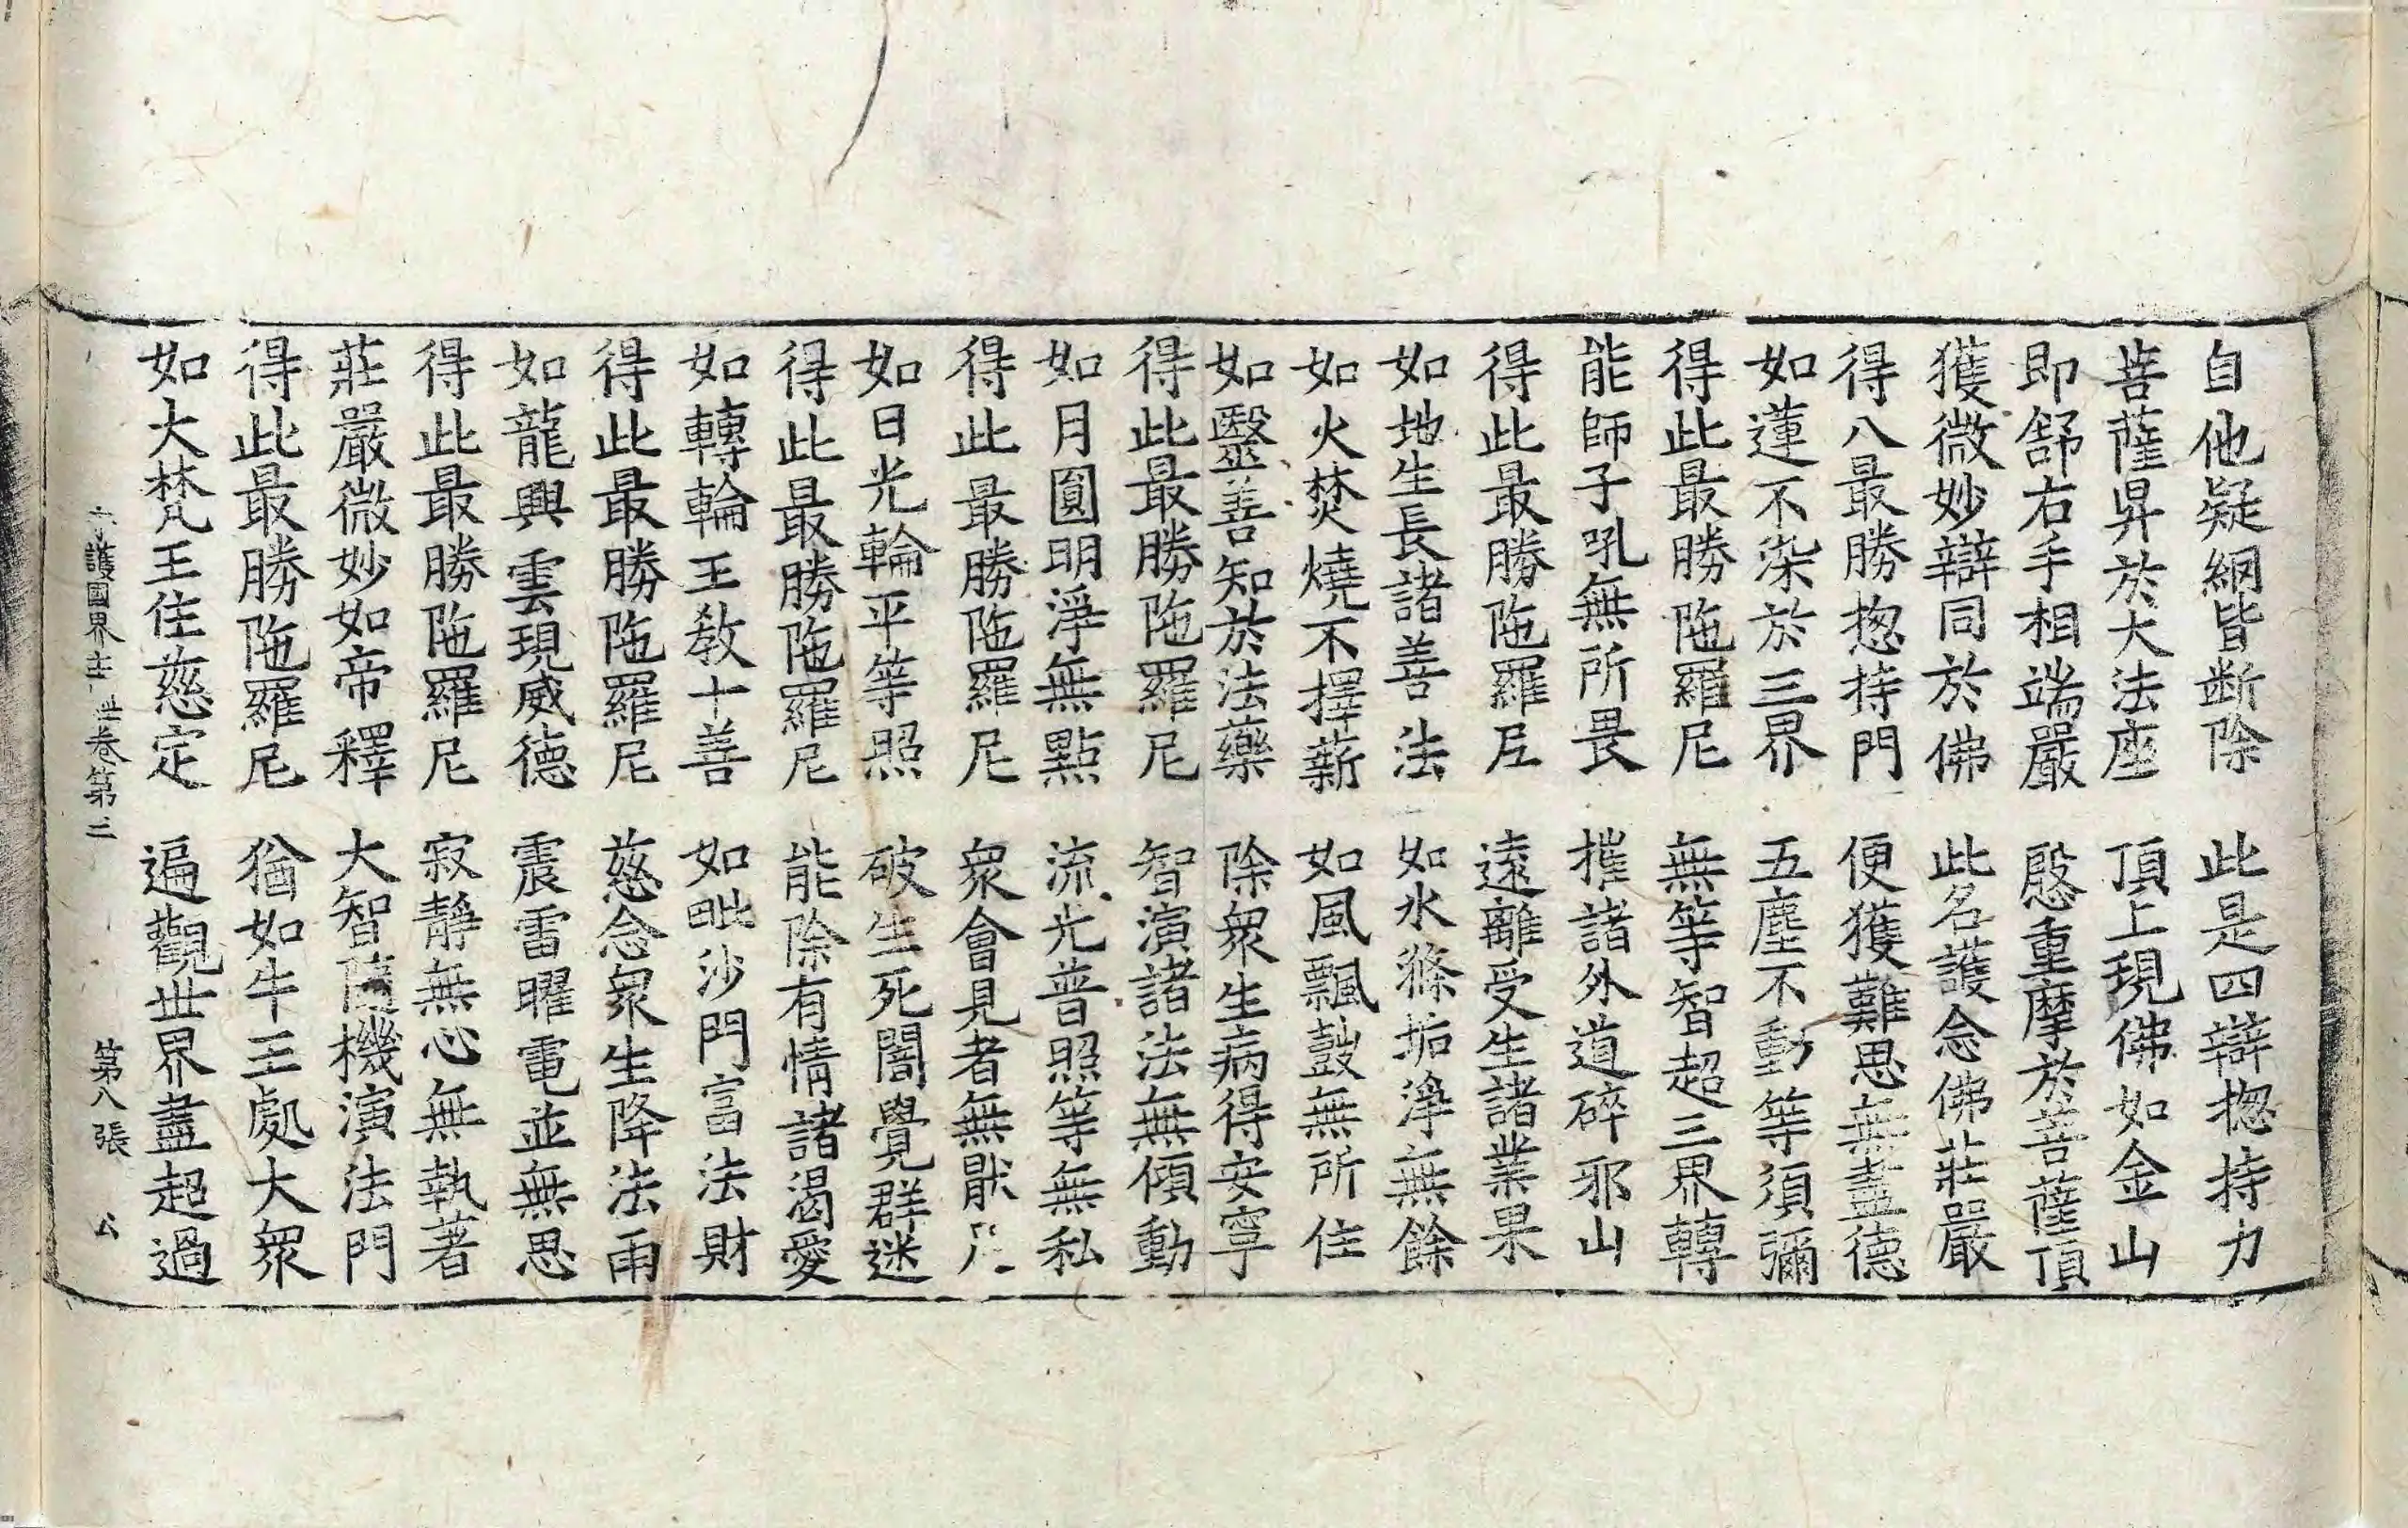 自他疑網皆斷除　此是四辯揔持力
菩薩昇於大法座　頂上現佛如金山
即舒右手相端嚴　慇重摩於菩薩頂
獲微妙辯同於佛　此名護念佛莊嚴
得八最勝揔持門　便獲難思無盡德
如蓮不染於三界　五塵不動等須彌
得此最勝陁羅尼　無等智超三界轉
能師子吼無所畏　摧諸外道碎邪山
得此最勝陁羅尼　遠離受生諸業果
如地生長諸善法　如水滌垢淨無餘
如火焚燒不擇薪　如風飄鼓無所住
如毉善知於法藥　除衆生病得安寧
得此最勝陁羅尼　智演諸法無傾動
如月圓明淨無點　流光普照等無私
得此最勝陁羅尼　衆會見者無猒
如日光輪平等照　破生死闇覺群迷
得此最勝陁羅尼　能除有情諸渴愛
如轉輪王敎十善　如毗沙門富法財
得此最勝陁羅尼　慈念衆生降法雨
如龍興雲現威德　震雷曜電並無思
得此最勝陁羅尼　寂靜無心無執著
莊嚴微妙如帝釋　大智隨機演法門
得此最勝陁羅尼　猶如牛王處大衆
如大梵王住慈定　遍觀世界盡超過
護國界主卷第三　第八張　公